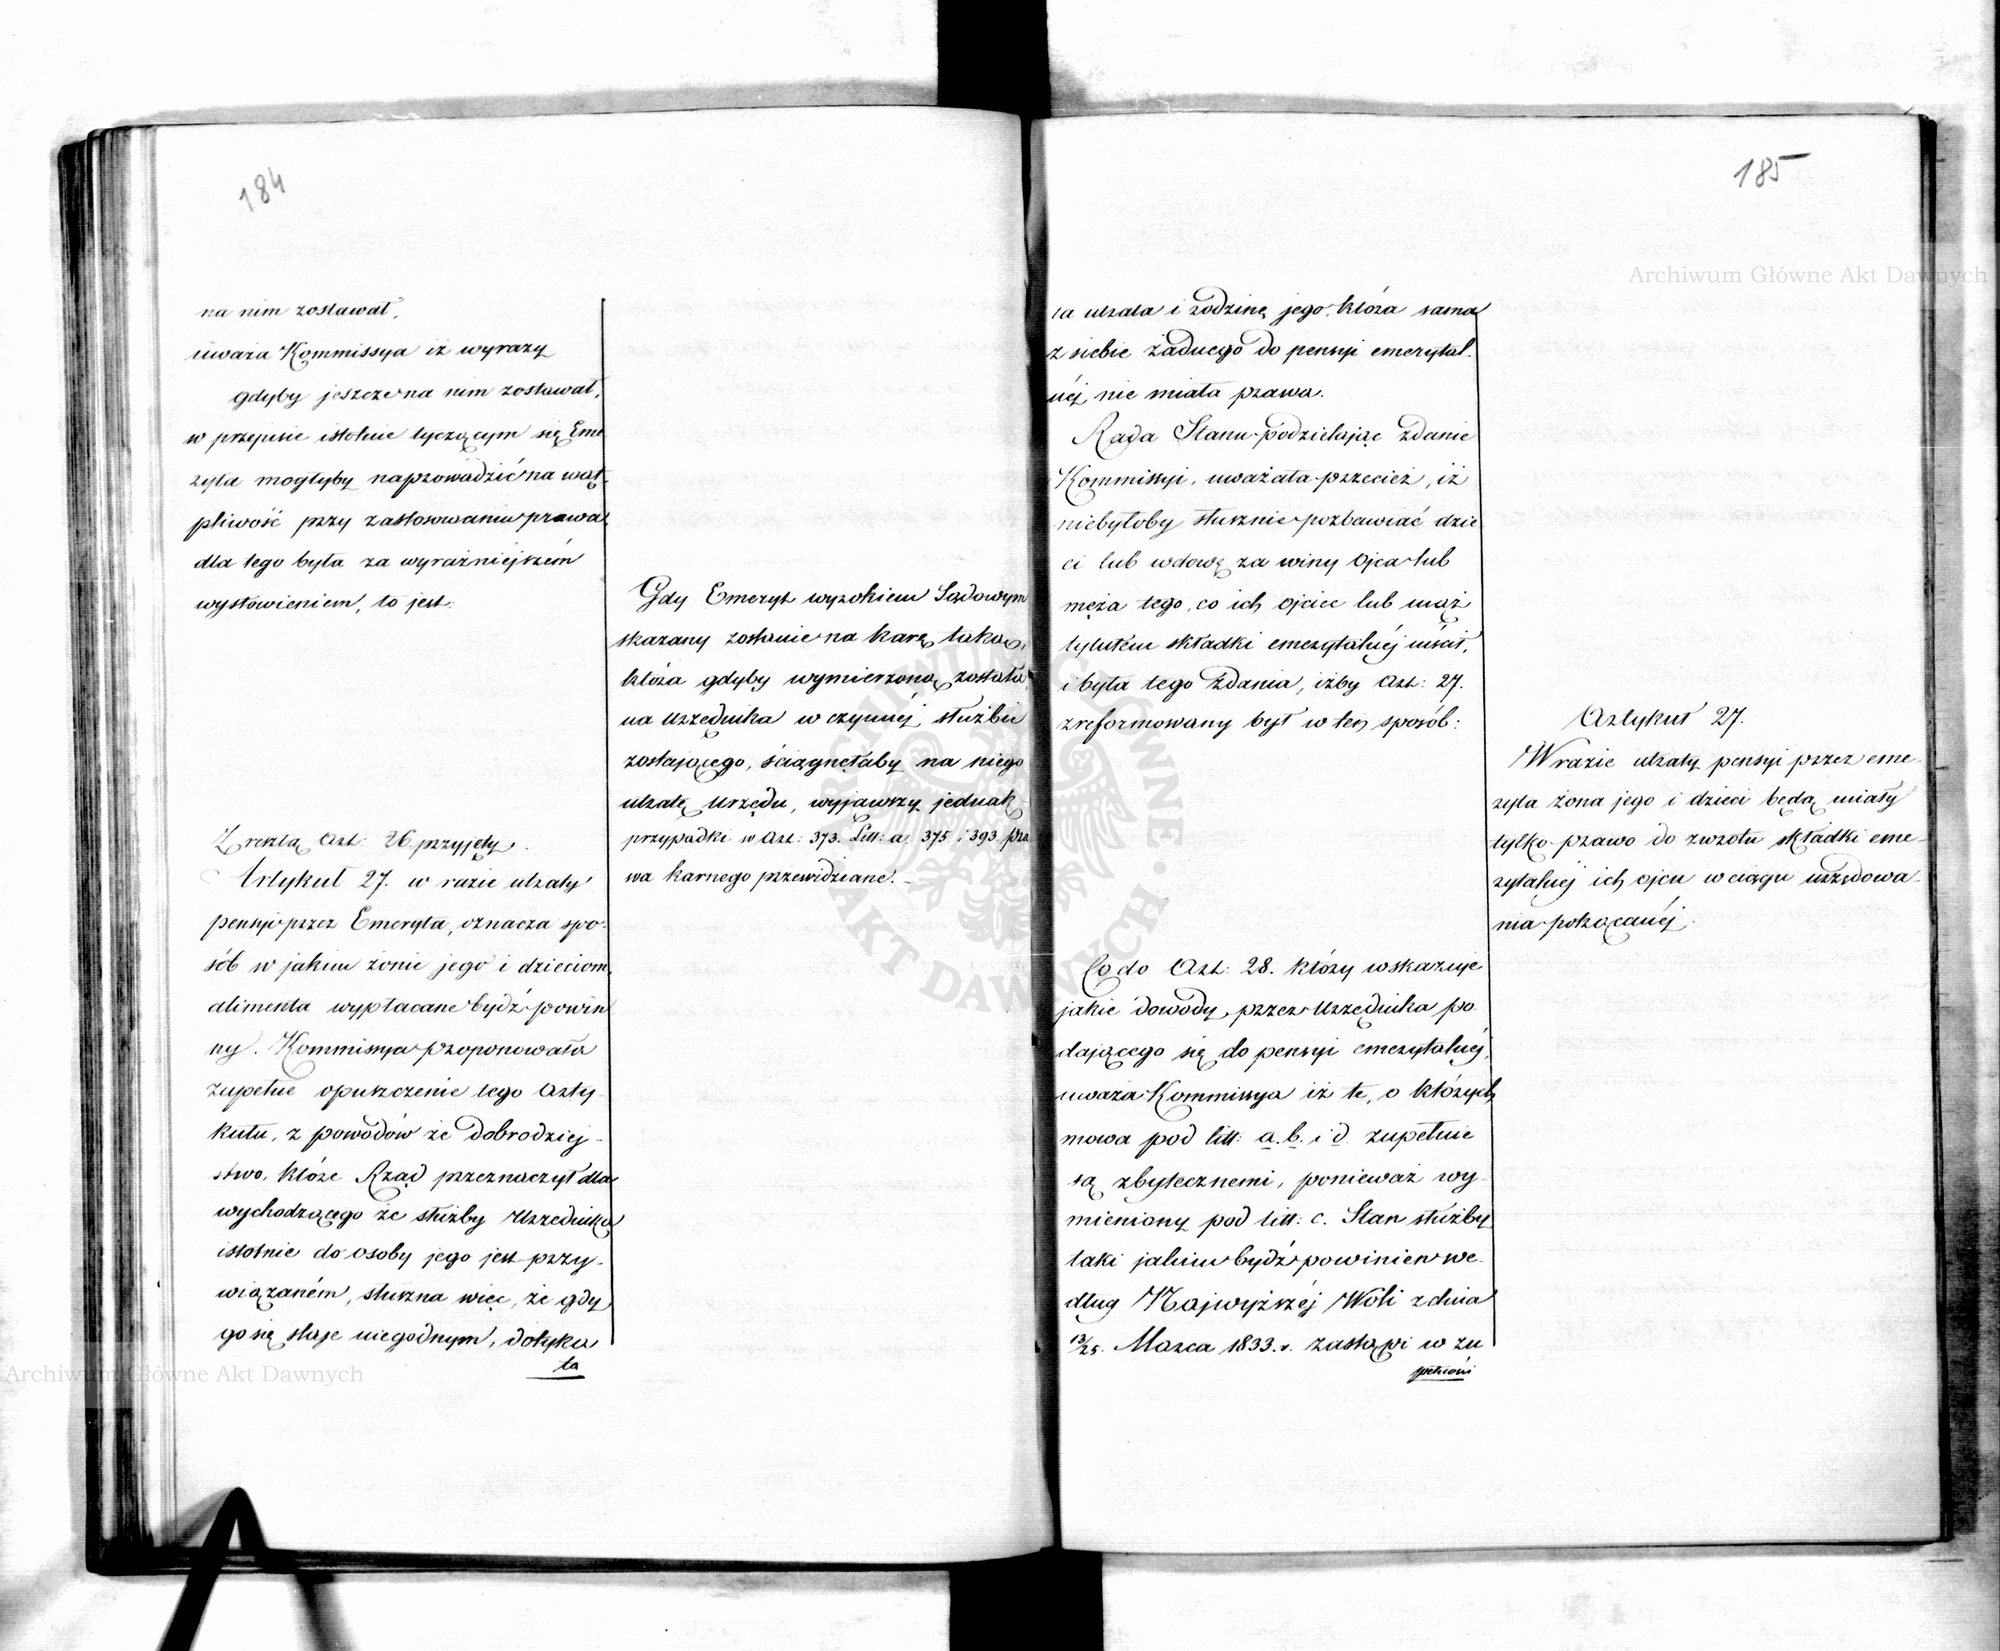 184
na nim zostawał,
uważa Kommissya iż wyrazy
gdyby jeszcze na nim zostawał,
w przepisie istotnie tyczącym się Eme
ryta mogłyby naprowadzić na wąt-
pliwość przy zastosowaniu prawa
dla tego była za wyraźniejszém
wysłowieniem, to jest:
Gdy Emeryt wyrokiem Sądowym
skazany zostanie na karę taką,
która gdyby wymierzoną została
na Urzędnika w czynnéj służbie
zostającego, ściągnęłaby na niego
utratę Urzędu, wyjąwszy jednak
przypadki w Art: 373. Litt: a. 375 i 393 Pra
wa karnego przewidziane.
Zresztą Art: 26 przyjęty.
Artykuł 27. w razie utraty
pensyi przez Emeryta, oznacza spo-
sób w jakim żonie jego i dzieciom
alimenta wypłacane bydź powin
ny. Kommissya proponowała
zupełne opuszczenie tego Arty-
kułu, z powodów że dobrodziej-
stwo, które Rząd przeznaczył dla
wychodzącego ze służby Urzędnika
istotnie do osoby jego jest przy-
wiązaném, słuszna więc, że gdy
go się staje niegodnym, dotyka
ta
185
ta utrata i rodzinę jego, która sama
z siebie żadnego do pensyi emerytal-
néj nie miała prawa.
Rada Stanu podzielając zdanie
Kommissyi, uważała przecież, iż
niebyłoby słusznie pozbawiać dzie
ci lub wdowę za winy Ojca lub
męża tego, co ich ojciec lub mąż
tytułem składki emerytalnéj uiścił,
i była tego zdania, iżby Art: 27.
zreformowany był w ten sposób:
Artykuł 27.
W razie utraty pensyi przez eme-
ryta żona jego i dzieci będą miały
tylko prawo do zwrotu składki eme-
rytalnéj ich ojcu w ciągu urzędowa-
nia potrącanéj.
Co do Art: 28. który wskazuje
jakie dowody przez Urzędnika po-
dającego się do pensyi emerytalnéj,
uważa Kommissya iż te, o których
mowa pod litt: a. b. i d. zupełnie
są zbytecznemi, ponieważ wy-
mieniony pod litt: c. Stan służby
taki jakim bydź powinien we-
dług Najwyższéj Woli z dnia
13/25. Marca 1833. r. zastąpi w zu
pełności
Archiwum Główne Akt Dawnych
Archiwum Główne Akt Dawnych
ARCHIWUM GŁÓWNE AKT DAWNYCH